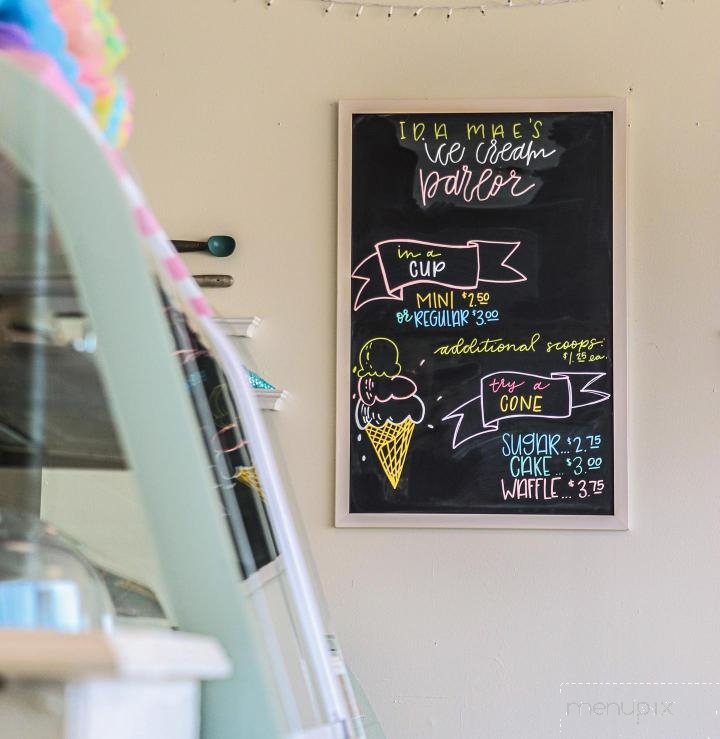 IDA MAE'S
ice cream
parlor
in a
CUP
MINI $2.50
or REGULAR $3.00
additional scoops:
$1.25 ea.
try a
CONE
SUGAR... $2.75
CAKE ... $3.00
WAFFLE... $3.75
menupix